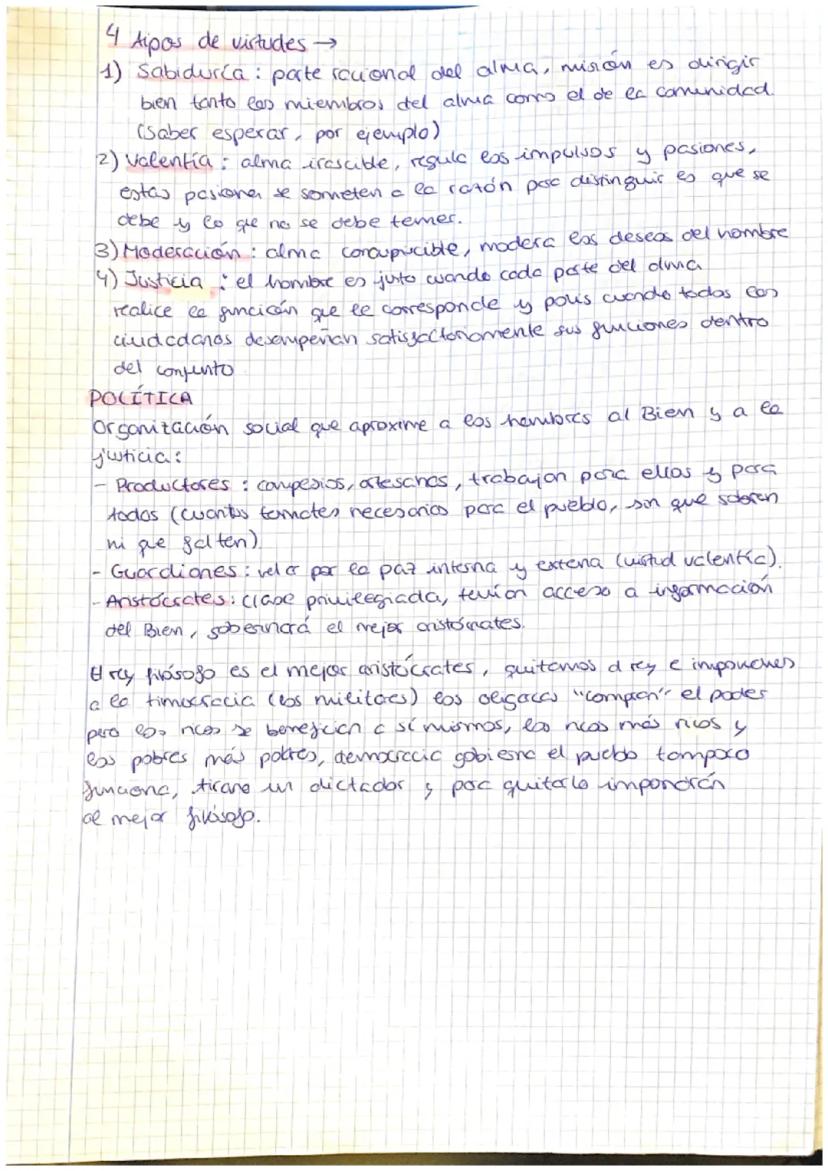 4 tipos de virtudes →
1) Sabiduría : parte racional del alma, misión es dirigir
bien tanto los miembros del alma como el de la comunidad.
(saber esperar, por ejemplo)
2) Valentía : alma irascible, regula los impulsos y pasiones,
estas pasiones se someten a la razón para distinguir es que se
debe y lo que no se debe temer.
3) Moderación : alma concupiscible, modera los deseos del hombre
4) Justicia : el hombre es justo cuando cada parte del alma
realice la función que le corresponde y polis cuando todos los
ciudadanos desempeñan satisfactoriamente sus funciones dentro
del conjunto
POLÍTICA
Organización social que aproxime a los hombres al Bien y a la
justicia :
- Productores : campesinos, artesanos, trabajan para ellos y para
todos (cuantos tomates necesarios para el pueblo, sin que sobren
ni que falten)
- Guardianes : velar por la paz interna y externa (virtud valentía).
- Aristócrates : clase privilegiada, tenían acceso a información
del Bien, gobernará el mejor aristócrates.
El rey filósofo es el mejor aristócrates, quitamos al rey e imponemos
a la timocracia (los militares) los oligarcas "compran" el poder
pero los ricos se benefician a sí mismos, los ricos más ricos y
los pobres más pobres, democracia gobierna el pueblo tampoco
funciona, tirano un dictador y para quitarlo impondrán
al mejor filósofo.